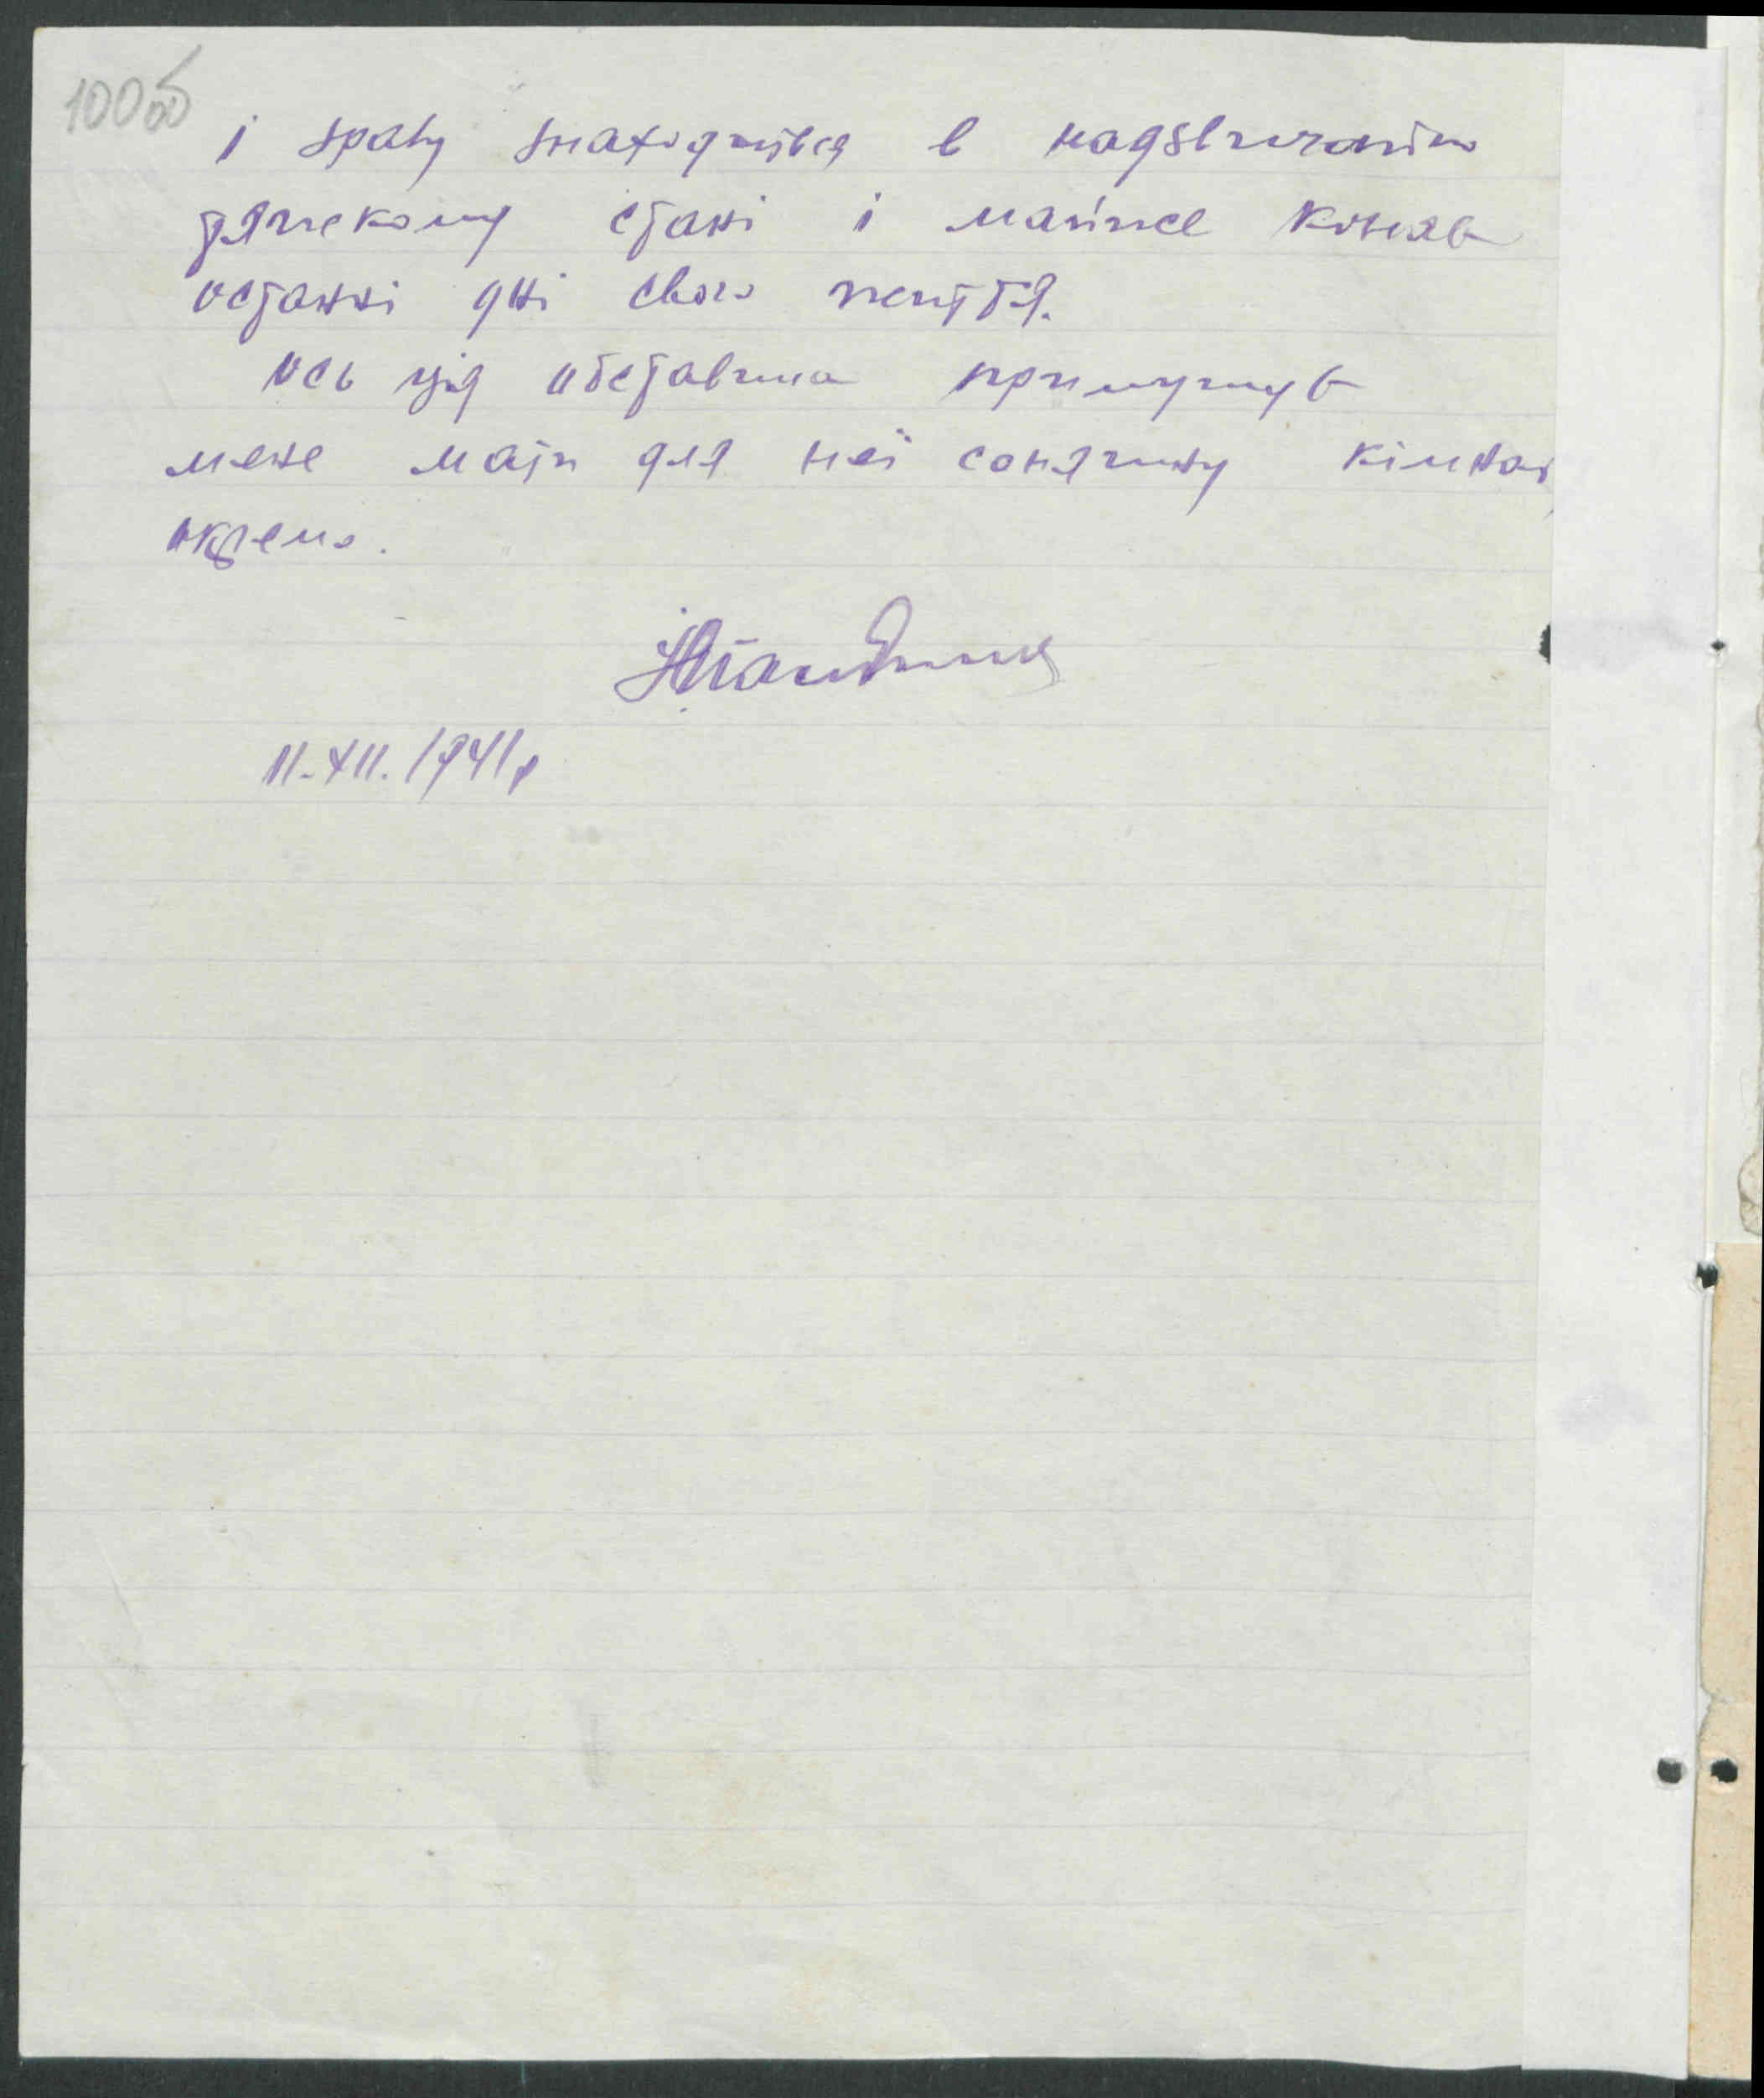 100об
і зразу знаходився в надзвичайно
тяжкому стані і майже кожен
останні дні свого життя.
Ось ця обставина примушує
мене мати для неї сонячну кімнат
окремо.
11.XII.1941р